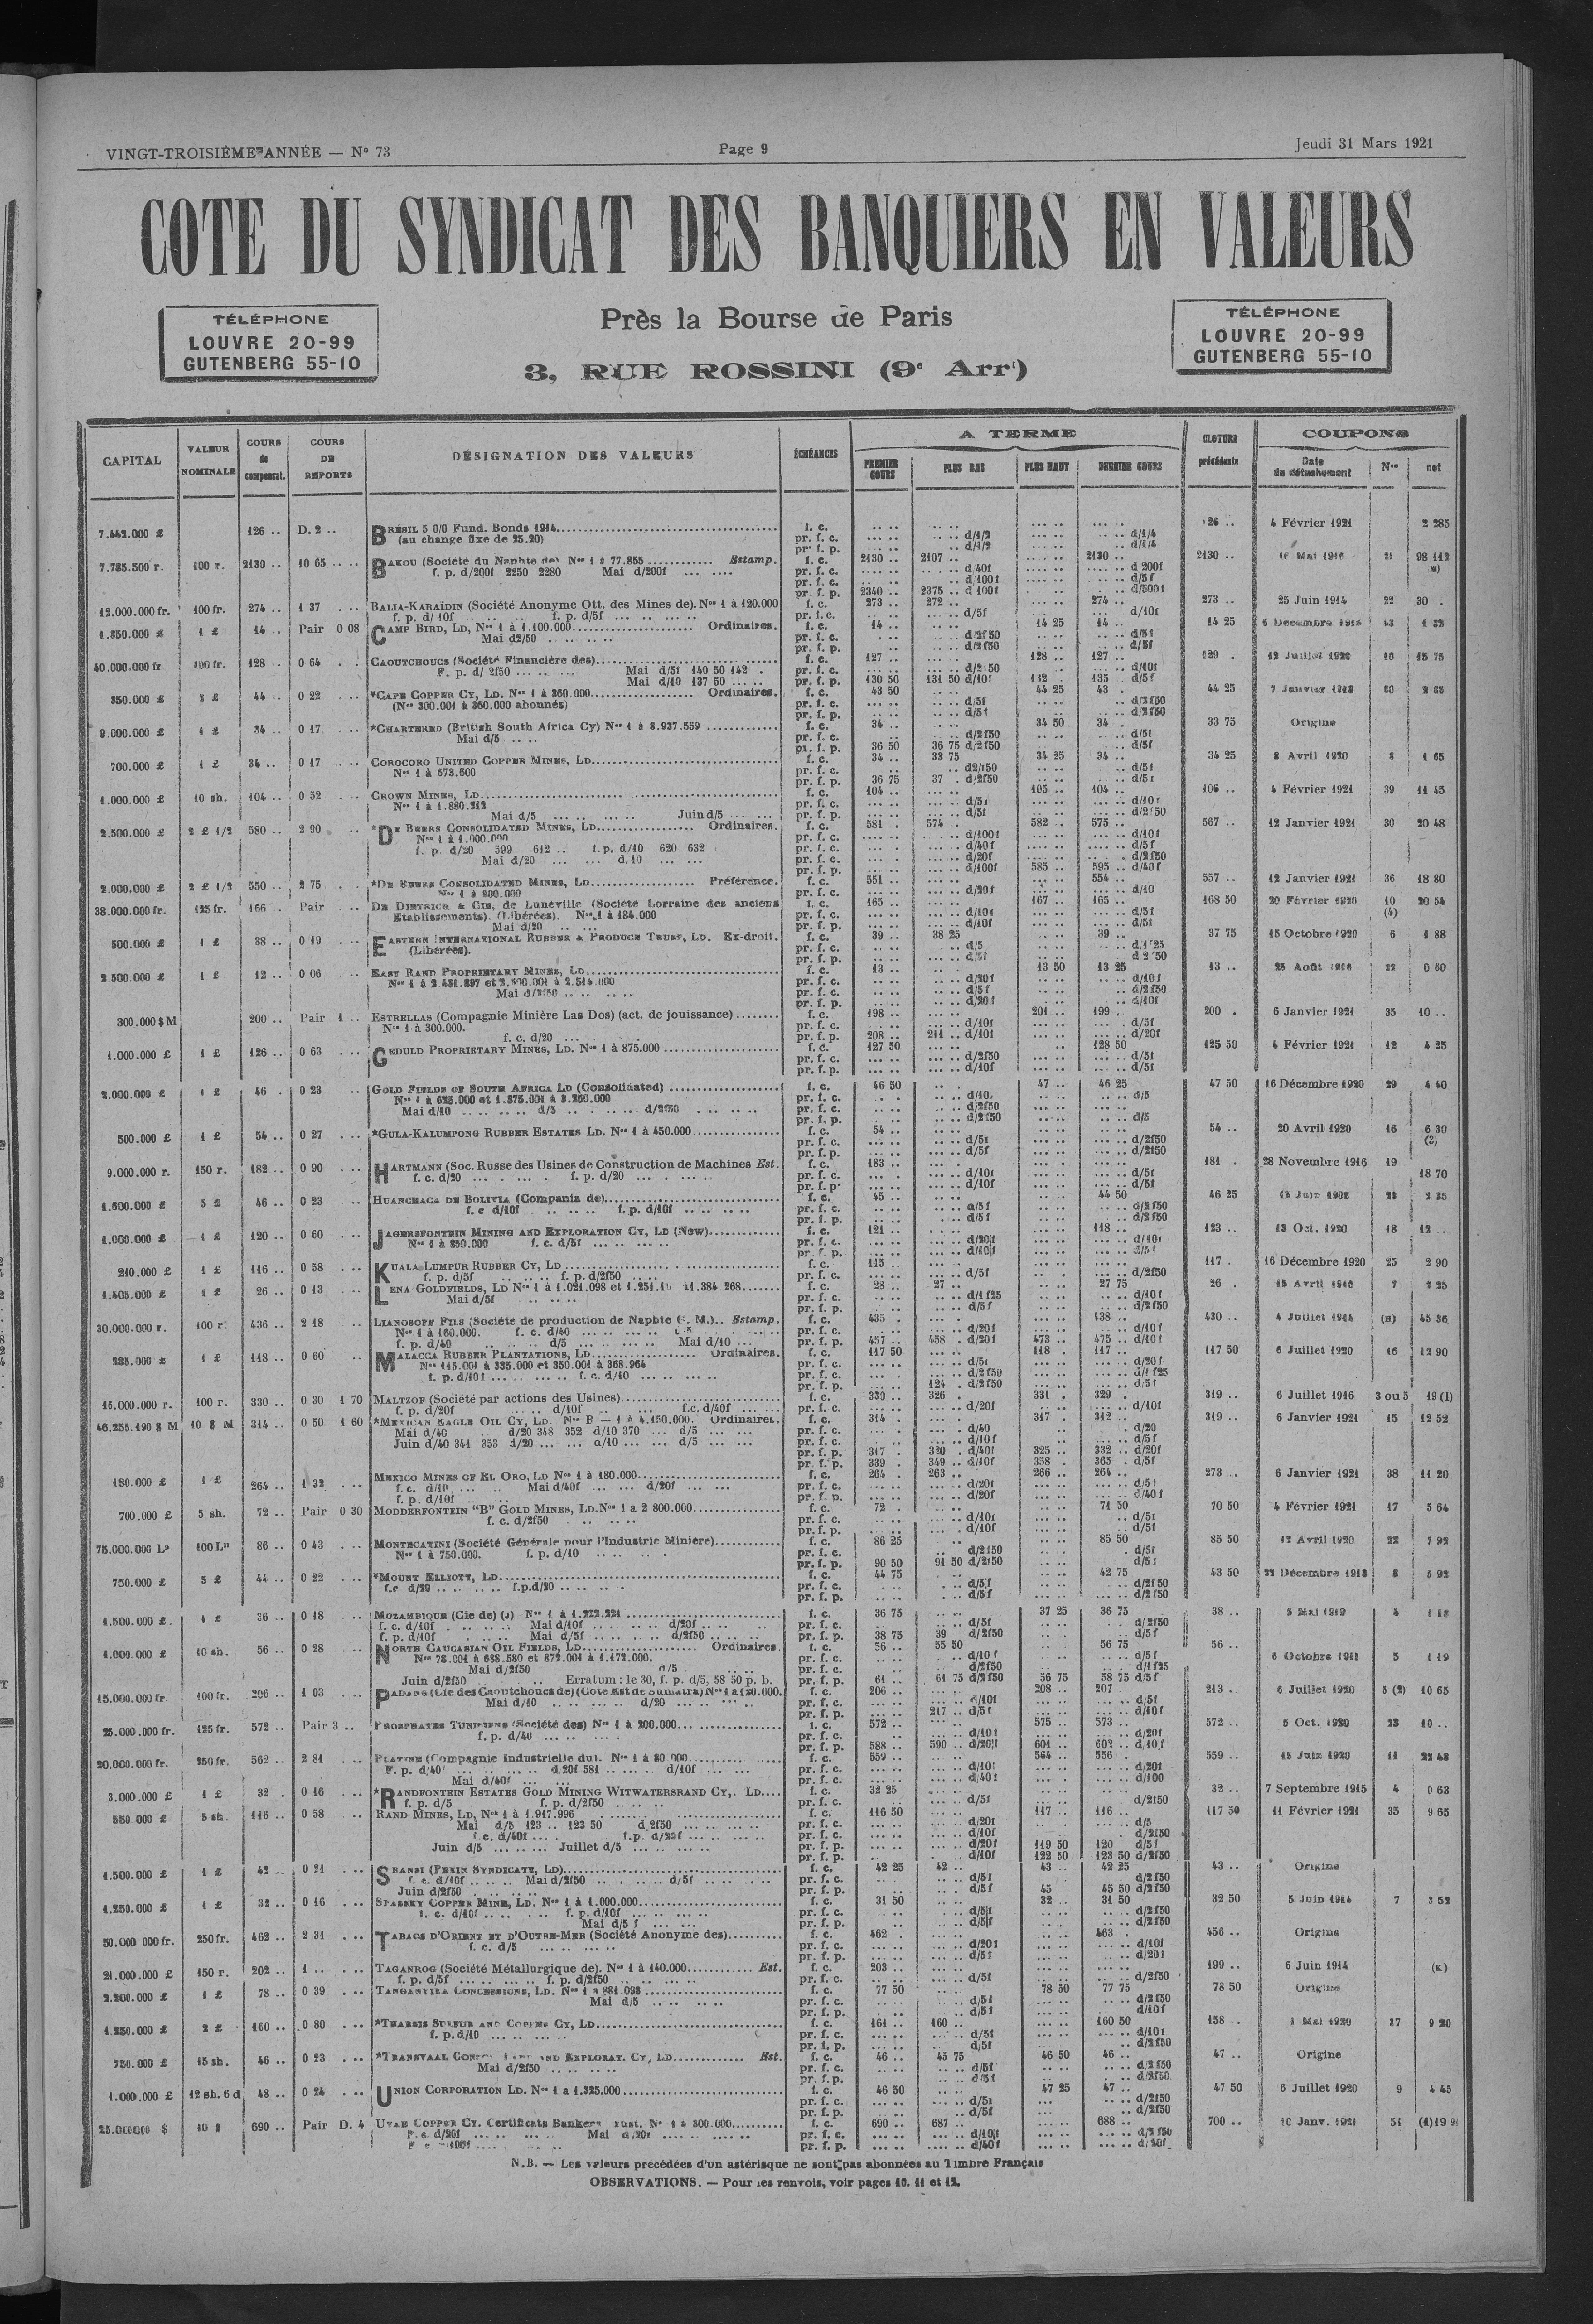 VINGT-TROISIÈME ANNÉE — N° 73
Page 9
Jeudi 31 Mars 1921
COTE DU SYNDICAT DES BANQUIERS EN VALEURS
TÉLÉPHONE
LOUVRE 20-99
GUTENBERG 55-10
Près la Bourse de Paris
3, RUE ROSSINI (9e Arrt)
TÉLÉPHONE
LOUVRE 20-99
GUTENBERG 55-10
CAPITAL VALEUR NOMINALE COURS de compensat. COURS DE REPORTS DÉSIGNATION DES VALEURS ÉCHÉANCES A TERME PREMIER COURS PLUS BAS PLUS HAUT DERNIER COURS CLOTURE précédente COUPONS Date du détachement Nos net
7.442.000 £ 126 .. D. 2 .. BRÉSIL 5 0/0 Fund. Bonds 1914 f. c. 126 .. 4 Février 1921 2 285
(au change fixe de 25.20) pr. f. c. d/1/2 d/1/4
pr. f. p. d/1/2 d/1/4
7.785.500 r. 100 r. 2130 .. 10 65 BAKOU (Société du Naphte de) Nos 1 à 77.855 Estamp. f. c. 2130 .. 2107 .. 2130 .. 2130 .. 21 98 112
f. p. d/200f 2250 2280 Mai d/200f pr. f. c. d/40f d 200f
pr. f. c. d/100f d/5f
pr. f. p. 2340 .. 2375 .. d 100f d/500f
12.000.000 fr. 100 fr. 274 .. 1 37 BALIA-KARAÏDIN (Société Anonyme Ott. des Mines de). Nos 1 à 120.000 f. c. 273 .. 272 .. 274 .. 273 .. 25 Juin 1914 22 30 .
f. p. d/10f f. p. d/5f pr. f. c. d/5f d/10f
1.350.000 £ 1 £ 14 .. Pair 0 08 CAMP BIRD, LD, Nos 1 à 1.100.000 Ordinaires. f. c. 14 .. 14 25 14 .. 14 25
Mai d2/50 pr. f. c. d/2f50 d/5f
pr. f. p. d/2f50 d/5f
40.000.000 fr 100 fr. 128 .. 0 64 CAOUTCHOUCS (Société Financière des) f. c. 127 .. 128 .. 127 .. 129 . 12 Juillet 1920 10 15 75
F. p. d/2f50 Mai d/5f 140 50 142 . pr. f. c. d/2f50 d/10f
Mai d/10 137 50 pr. f. p. 130 50 131 50 d/10f 132 . 135 . d/5f
350.000 £ 44 .. 0 22 *CAPE COPPER CY, LD. Nos 1 à 360.000 Ordinaires. f. c. 43 50 44 25 43 . 44 25
(Nos 300.001 à 360.000 abonnés) pr. f. c. d/5f d/2f50
pr. f. p. d/5f d/2f50
9.000.000 £ 1 £ 34 .. 0 17 *CHARTERED (British South Africa Cy) Nos 1 à 8.937.559 f. c. 34 .. 34 50 34 . 33 75 Origine
Mai d/5 pr. f. c. d/2f50 d/5f
pr. f. p. 36 50 36 75 d/2f50 d/5f
700.000 £ 1 £ 34 .. 0 17 COROCORO UNITED COPPER MINES, LD f. c. 34 .. 33 75 34 25 34 .. 34 25 8 Avril 1920 8 1 65
Nos 1 à 673.600 pr. f. c. d2/f50 d/5f
pr. f. p. 36 75 37 . d/2f50 d/5f
1.000.000 £ 10 sh. 104 .. 0 52 CROWN MINES, LD f. c. 104 .. 105 .. 104 .. 106 .. 4 Février 1921 39 11 45
Nos 1 à 1.880.212 pr. f. c. d/5f d/10f
Mai d/5 Juin d/5 pr. f. p. d/5f d/2f50
2.500.000 £ 2 £ 1/2 580 .. 2 90 *DE BEERS CONSOLIDATED MINES, LD Ordinaires. f. c. 581 . 574 . 582 .. 575 .. 567 .. 12 Janvier 1921 30 20 48
Nos 1 à 1.000.000 pr. f. c. d/100f d/10f
f. p. d/20 599 612 .. f. p. d/10 620 632 pr. f. c. d/40f d/5f
Mai d/20 d/10 pr. f. c. d/20f d/2f50
pr. f. p. d/100f 585 .. 595 .. d/40f
2.000.000 £ 2 £ 1/2 550 .. 2 75 *DE BEERS CONSOLIDATED MINES, LD Préférence. f. c. 551 .. 554 .. 557 .. 12 Janvier 1921 36 18 80
Nos 1 à 800.000 pr. f. c. d/20f d/10
38.000.000 fr. 125 fr. 166 .. Pair DE DIETRICH & CIE, de Lunéville (Société Lorraine des anciens f. c. 165 .. 167 .. 165 .. 168 50 20 Février 1920 10 20 54
Etablissements). (Libérées). Nos 1 à 184.000 pr. f. c. d/10f d/5f (4)
Mai d/20 pr. f. p. d/10f d/5f
500.000 £ 1 £ 38 .. 0 19 EASTERN INTERNATIONAL RUBBER & PRODUCE TRUST, LD. Ex-droit. f. c. 39 .. 38 25 39 .. 37 75 15 Octobre 1920 6 1 88
(Libérées). pr. f. c. d/5 d/1f25
pr. f. p. d/5f d 2f50
2.500.000 £ 1 £ 12 .. 0 06 EAST RAND PROPRIETARY MINES, LD f. c. 13 .. 13 50 13 25 13 .. 0 60
Nos 1 à 2.431.897 et 2.500.001 à 2.514.000 pr. f. c. d/20f d/10f
Mai d/2f50 pr. f. c. d/5f d/2f50
pr. f. p. d/20f d/10f
300.000 $ M 200 .. Pair 1 .. ESTRELLAS (Compagnie Minière Las Dos) (act. de jouissance) f. c. 198 .. 201 .. 199 .. 200 . 6 Janvier 1921 35 10 ..
Nos 1 à 300.000. pr. f. c. d/10f d/5f
f. c. d/20 pr. f. p. 208 .. 211 .. d/10f d/20f
1.000.000 £ 1 £ 126 .. 0 63 GEDULD PROPRIETARY MINES, LD. Nos 1 à 875.000 f. c. 127 50 128 50 125 50 4 Février 1921 12 4 25
pr. f. c. d/2f50 d/5f
pr. f. p. d/10f d/5f
2.000.000 £ 1 £ 46 . 0 23 GOLD FIELDS OF SOUTH AFRICA LD (Consolidated) f. c. 46 50 47 .. 46 25 47 50 16 Décembre 1920 29 4 40
Nos 1 à 625.000 et 1.875.001 à 3.250.000 pr. f. c. d/10 d/5
Mai d/10 d/5 d/2f50 pr. f. c. d/2f50
pr. f. p. d/2f50 d/5
500.000 £ 1 £ 54 .. 0 27 *GULA-KALUMPONG RUBBER ESTATES LD. Nos 1 à 450.000 f. c. 54 .. 54 .. 20 Avril 1920 16 6 30
pr. f. c. d/5f d/2f50
pr. f. p. d/5f d/2f50
9.000.000 r. 150 r. 182 .. 0 90 HARTMANN (Soc. Russe des Usines de Construction de Machines Est. f. c. 183 .. 181 . 28 Novembre 1916 19 18 70
f. c. d/20 f. p. d/20 pr. f. c. d/10f d/5f
pr. f. p. d/10f d/5f
1.600.000 £ 5 £ 46 .. 0 23 HUANCHACA DE BOLIVIA (Compania de) f. c. 45 .. 44 50 46 25
f. c d/10f f. p. d/10f pr. f. c. d/5f d/2f50
pr. f. p. d/5f d/2f50
1.000.000 £ 1 £ 120 .. 0 60 JAGERSFONTEIN MINING AND EXPLORATION CY, LD (New) f. c. 121 .. 118 .. 123 .. 13 Oct. 1920 18 12 ..
Nos 1 à 250.000 f. c. d/5f pr. f. c. d/20f d/10f
pr. f. p. d/10f
210.000 £ 1 £ 116 .. 0 58 KUALA LUMPUR RUBBER CY, LD f. c. 115 .. 117 . 16 Décembre 1920 25 2 90
f. p. d/5f f. p. d/2f50 pr. f. c. d/5f d/2f50
1.405.000 £ 1 £ 26 .. 0 13 LENA GOLDFIELDS, LD Nos 1 à 1.021.098 et f. c. 28 .. 27 .. 27 75 26 . 15 Avril 1916 7
Mai d/5f pr. f. c. d/1f25 d/10f
pr. f. p. d/5f d/2f50
30.000.000 r. 100 r. 436 .. 2 18 LIANOSOFF FILS (Société de production de Naphte G. M.) Estamp. f. c. 435 . 438 .. 430 .. 4 Juillet 1914 45 36
Nos 1 à 160.000. f. c. d/40 pr. f. c. d/20f d/10f
f. p. d/40 d/5 Mai d/10 pr. f. p. 457 .. 458 .. d/20f 473 .. 475 .. d/10f
285.000 £ 1 £ 118 .. 0 60 MALACCA RUBBER PLANTATIONS, LD Ordinaires. f. c. 117 50 118 . 117 .. 117 50 6 Juillet 1920 16 12 90
Nos 115.001 à 335.000 et 350.001 à 368.964 pr. f. c. d/5f d/20f
f. p. d/10f f. c. d/10 pr. f. c. d/2f50 d/1f25
pr. f. p. 124 . d/2f50 d/5f
16.000.000 r. 100 r. 330 .. 0 30 1 70 MALTZOF (Société par actions des Usines) f. c. 330 .. 326 . 331 . 329 . 319 .. 6 Juillet 1916 3 ou 5 19 (1)
f. p. d/20f d/10f f.c. d/40f pr. f. c. d/20f d/10f
46.255.190 $ M 10 $ M 314 .. 0 50 1 60 *MEXICAN EAGLE OIL CY, LD. Nos B — 1 à 4.150.000. Ordinaires. f. c. 314 . 317 . 312 .. 319 .. 6 Janvier 1921 15 12 52
Mai d/40 d/20 348 352 d/10 370 d/5 pr. f. c. d/40 d/20
Juin d/40 341 353 d/20 d/10 d/5 pr. f. c. d/10f d/5f
pr. f. p. 317 . 320 . d/40f 325 .. 332 .. d/20f
pr. f. p. 339 . 349 .. d/10f 358 . 365 . d/5f
180.000 £ 1 £ 264 .. 1 32 MEXICO MINES OF EL ORO, LD Nos 1 à 180.000 f. c. 264 . 263 .. 266 .. 264 .. 273 .. 6 Janvier 1921 38 11 20
f. c. d/10 Mai d/40f d/20f pr. f. c. d/20f d/5f
f. p. d/10f pr. f. p. d/20f d/40f
700.000 £ 5 sh. 72 .. Pair 0 30 MODDERFONTEIN "B" GOLD MINES, LD. Nos 1 a 2 800.000 f. c. 72 .. 71 50 70 50 4 Février 1921 17 5 64
f. c. d/2f50 pr. f. c. d/10f d/5f
pr. f. p. d/10f d/5f
75.000.000 Ls 100 Ls 86 .. 0 43 MONTECATINI (Société Générale pour l'Industrie Minière) f. c. 86 25 85 50 85 50 12 Avril 1920 22 7 92
Nos 1 à 750.000. f. p. d/10 pr. f. c. d/2f50 d/5f
pr. f. p. 90 50 91 50 d/2f50 d/5f
750.000 £ 5 £ 44 .. 0 22 *MOUNT ELLIOTT, LD f. c. 44 75 42 75 43 50 22 Décembre 1913 5 92
f.c d/20 f.p.d/20 pr. f. c. d/5f d/2f50
pr. f. p. d/5f d/2f50
1.500.000 £. 1 £ 36 .. 0 18 MOZAMBIQUE (Cie de) (J) Nos 1 à 1.222.221 f. c. 36 75 37 25 36 75 38 ..
f. c. d/10f Mai d/10f d/20f pr. f. c. d/5f d/2f50
f. p. d/10f Mai d/5f d/2f50 pr. f. p. 38 75 39 d/2f50 d/5f
1.000.000 £ 10 sh. 56 .. 0 28 NORTH CAUCASIAN OIL FIELDS, LD Ordinaires f. c. 56 .. 55 50 56 75 56 .. 5 1 19
Nos 78.001 à 688.580 et 872.001 à 1.172.000. pr. f. c. d/10f d/5f
Mai d/2f50 d/5 pr. f. c. d/2f50 d/1f25
Juin d/2f50 Erratum : le 30, f. p. d/5, 58 50 p. b. pr. f. p. 61 . 61 75 d/2f50 56 75 58 75 d/5f
15.000.000 fr. 100 fr. 206 .. 1 03 PADANG (Cie des Caoutchoucs de) (Cote Est de Sumatra) Nos 1 à 150.000. f. c. 206 .. 208 .. 207 213 .. 6 Juillet 1920 5 (2) 10 65
Mai d/10 d/20 pr. f. c. d/10f d/5f
pr. f. p. 217 .. d/5f d/10f
25.000.000 fr. 125 fr. 572 .. Pair 3 .. PHOSPHATES TUNISIENS (Société des) Nos 1 à 200.000 f. c. 572 .. 575 .. 573 .. 572 .. 5 Oct. 1920 23 10 ..
f. p. d/40 pr. f. c. d/10f d/20f
pr. f. p. 588 .. 590 .. d/20f 601 .. 602 .. d/10f
20.000.000 fr. 250 fr. 562 .. 2 81 PLATINE (Compagnie Industrielle du). Nos 1 à 80.000 f. c. 559 .. 564 .. 556 . 559 .. 15 Juin 1920 11 22 48
F. p. d/40 d 20f 581 .. d/10f pr. f. c. d/10f d/20f
Mai d/40f pr. f. c. d/40f d/100
3.000.000 £ 1 £ 32 . 0 16 *RANDFONTEIN ESTATES GOLD MINING WITWATERSRAND CY,. LD f. c. 32 25 32 .. 7 Septembre 1915 4 0 63
f. p. d/5 f. p. d/2f50 pr. f. c. d/5f d/2f50
550 000 £ 5 sh. 116 .. 0 58 RAND MINES, LD, Nos 1 à 1.917.996 f. c. 116 50 117 .. 116 .. 117 50 11 Février 1921 35 9 65
Mai d/5 123 .. 123 50 d,2f50 pr. f. c. d/20f d/5
f.c. d/40f f.p. d/20f pr. f. c. d/10f d/2f50
Juin d/5 Juillet d/5 pr. f. p. d/20f 119 50 120 d/5f
pr. f. p. d/10f 122 50 123 50 d/2f50
1.500.000 £ 1 £ 42 .. 0 21 SHANSI (PEKIN SYNDICATE, LD) f. c. 42 25 42 .. 43 .. 42 25 43 .. Origine
f. c. d/10f Mai d/2f50 d/5f pr. f. c. d/5f d/2f50
Juin d/2f50 pr. f. p. d/5f 45 45 50 d/2f50
1.250.000 £ 1 £ 32 .. 0 16 SPASSKY COPPER MINE, LD. Nos 1 à 1.000.000 f. c. 31 50 32 .. 31 50 32 50 5 Juin 1914 7 3 52
f. c. d/10f f. p. d/10f pr. f. c. d/5f d/2f50
Mai d/5 f pr. f. p. d/5f d/2f50
50.000 000 fr. 250 fr. 462 .. 2 31 TABACS D'ORIENT ET D'OUTRE-MER (Société Anonyme des) f. c. 462 . 463 . 456 .. Origine
f. c. d/5 pr. f. c. d/20f d/10f
pr. f. p. d/5f d/20f
21.000.000 £ 150 r. 202 .. 1 .. TAGANROG (Société Métallurgique de). Nos 1 à 140.000 Est. f. c. 203 .. 199 .. 6 Juin 1914 (K)
f. p. d/5f f. p. d/2f50 pr. f. c. d/5f d/2f50
2.200.000 £ 1 £ 78 .. 0 39 TANGANYIKA CONCESSIONS, LD. Nos 1 à 881.098 f. c. 77 50 78 50 77 75 78 50 Origine
Mai d/5 pr. f. c. d/5f d/2f50
pr. f. p. d/5f d/10f
1.250.000 £ 2 £ 160 .. 0 80 *THARSIS SULFUR AND COPPER CY, LD f. c. 161 .. 160 .. 160 50 158 .. 37 9 20
f. p. d/10 pr. f. c. d/5f d/10f
pr. f. p. d/5f d/2f50
750.000 £ 15 sh. 46 .. 0 23 *TRANSVAAL LAND AND EXPLORAT. CY, LD Est. f. c. 46 .. 45 75 46 50 46 .. 47 .. Origine
Mai d/2f50 pr. f. c. d/5f d/2f50
pr. f. p. d/5f d/2f50
1.000.000 £ 12 sh. 6 d 48 .. 0 24 UNION CORPORATION LD. Nos 1 a 1.325.000 f. c. 46 50 47 25 47 .. 47 50 6 Juillet 1920 9 4 45
pr. f. c. d/5f d/2f50
pr. f. p. d/5f d/2f50
25.000000 $ 10 $ 690 .. Pair D. 4 UTAH COPPER CY. Certificats Bankers Trust, Nos 1 à 300.000 f. c. 690 .. 687 .. 688 .. 700 .. Janv. 1921 51
F. c. d/20f Mai d/20f pr. f. c. d/10f d/2f50
pr. f. p. d/40f d/20f
N.B. — Les valeurs précédées d'un astérisque ne sont pas abonnées au Timbre Français
OBSERVATIONS. — Pour les renvois, voir pages 10. 11 et 12.